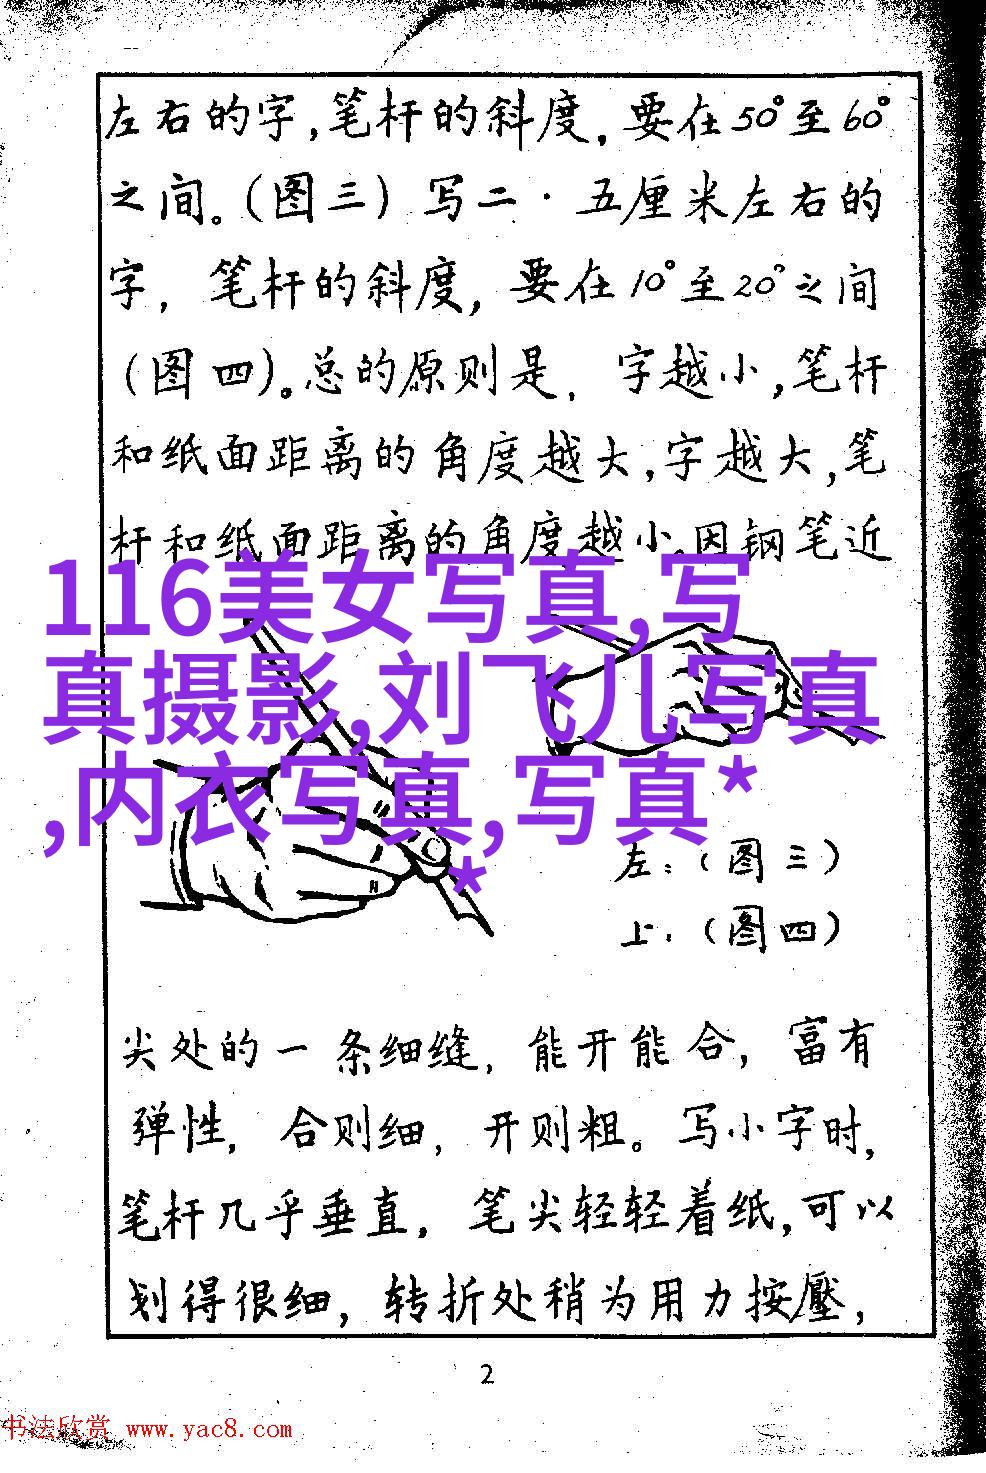 左右的字,笔杆的斜度,要在50°至60°
之间。(图三)写二·五厘米左右的
字,笔杆的斜度,要在10°至20°之间
(图四)。总的原则是,字越小,笔杆
和纸面距离的角度越大,字越大,笔
杆和纸面距离的角度越小。因钢笔近
116美女写真,写
真摄影,刘飞儿写真
,内衣写真,写真*
*
左:(图三)
上:(图四)
尖处的一条细缝,能开能合,富有
弹性,合则细,开则粗。写小字时,
笔杆几乎垂直,笔尖轻轻着纸,可以
划得很细,转折处稍为用力按壓,
2
书法欣赏 www.yac8.com